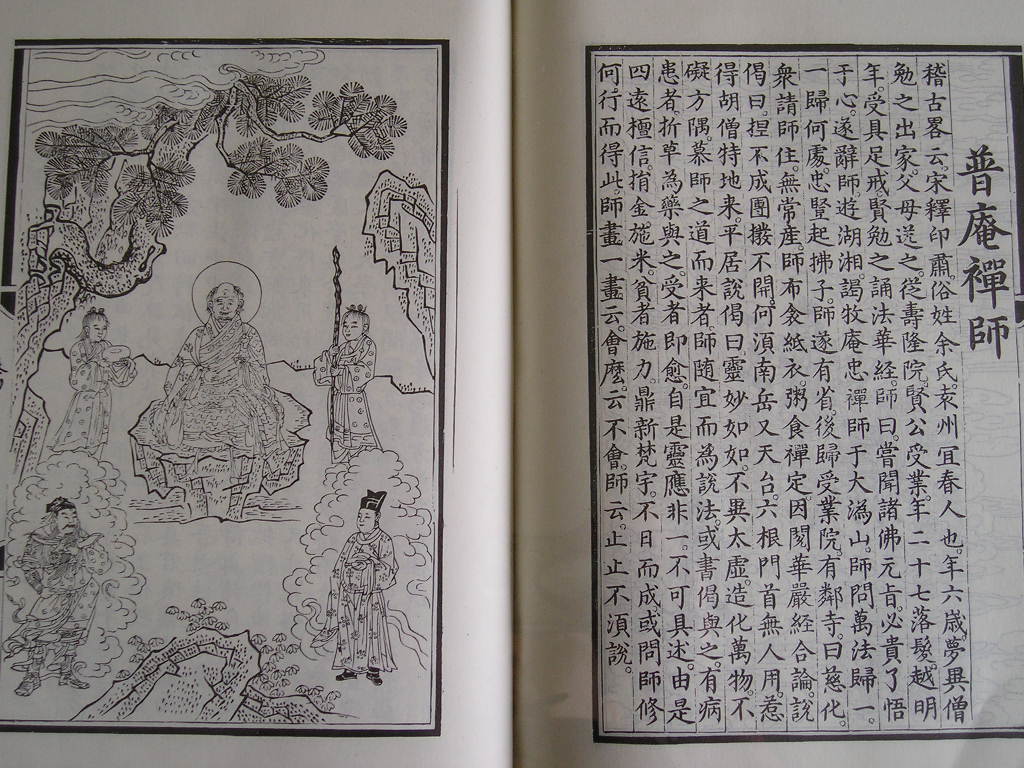 普庵禪師
稽古畧云。宋釋印肅。俗姓余氏。袁州宜春人也。年六歲。夢異僧
勉之出家。父母送之。從壽隆院賢公受業。年二十七落髮。越明
年。受具足戒。賢勉之誦法華經。師曰。嘗聞諸佛元旨。必貴了悟
于心。遂辭師遊湖湘。謁牧庵忠禪師于大溈山。師問萬法歸一。
一歸何處。忠竪起拂子。師遂有省。後歸受業院。有鄰寺。曰慈化。
衆請師住。無常産。師布衾紙衣。粥食禪定。因閱華嚴經合論。說
偈曰。捏不成團撥不開。何須南岳又天台。六根門首無人用。惹
得胡僧特地來。平居說偈曰。靈妙如如。不異太虛。造化萬物。不
礙方隅。慕師之道而來者。師隨宜而為說法。或書偈與之。有病
患者。折草為藥與之。受者即愈。自是靈應非一。不可具述。由是
四遠檀信。捐金施米。貧者施力。鼎新梵宇。不日而成。或問師修
何行而得此。師畫一畫云。會麼。云不會。師云。止止不須說。